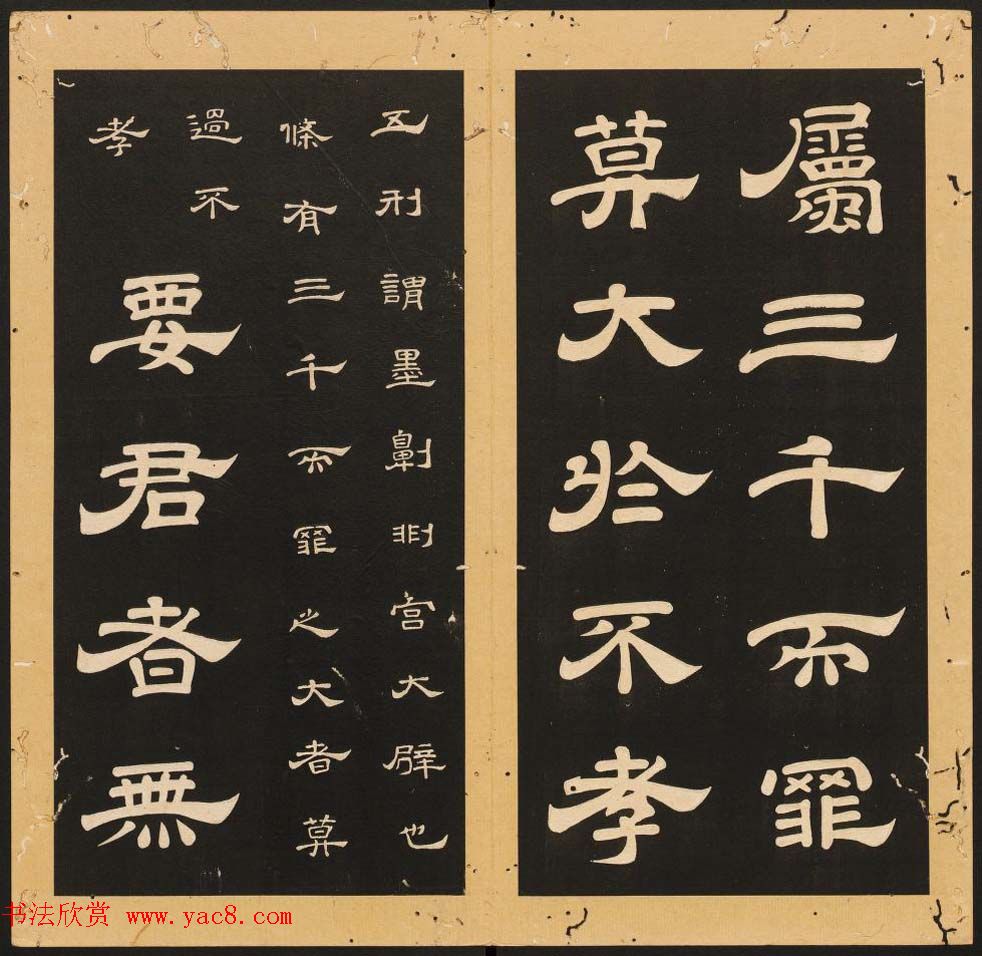 屬三千而罪
莫大於不孝
五刑謂墨劓剕宮大辟也
條有三千而罪之大者莫
過不
孝
要君者無
书法欣赏 www.yac8.com